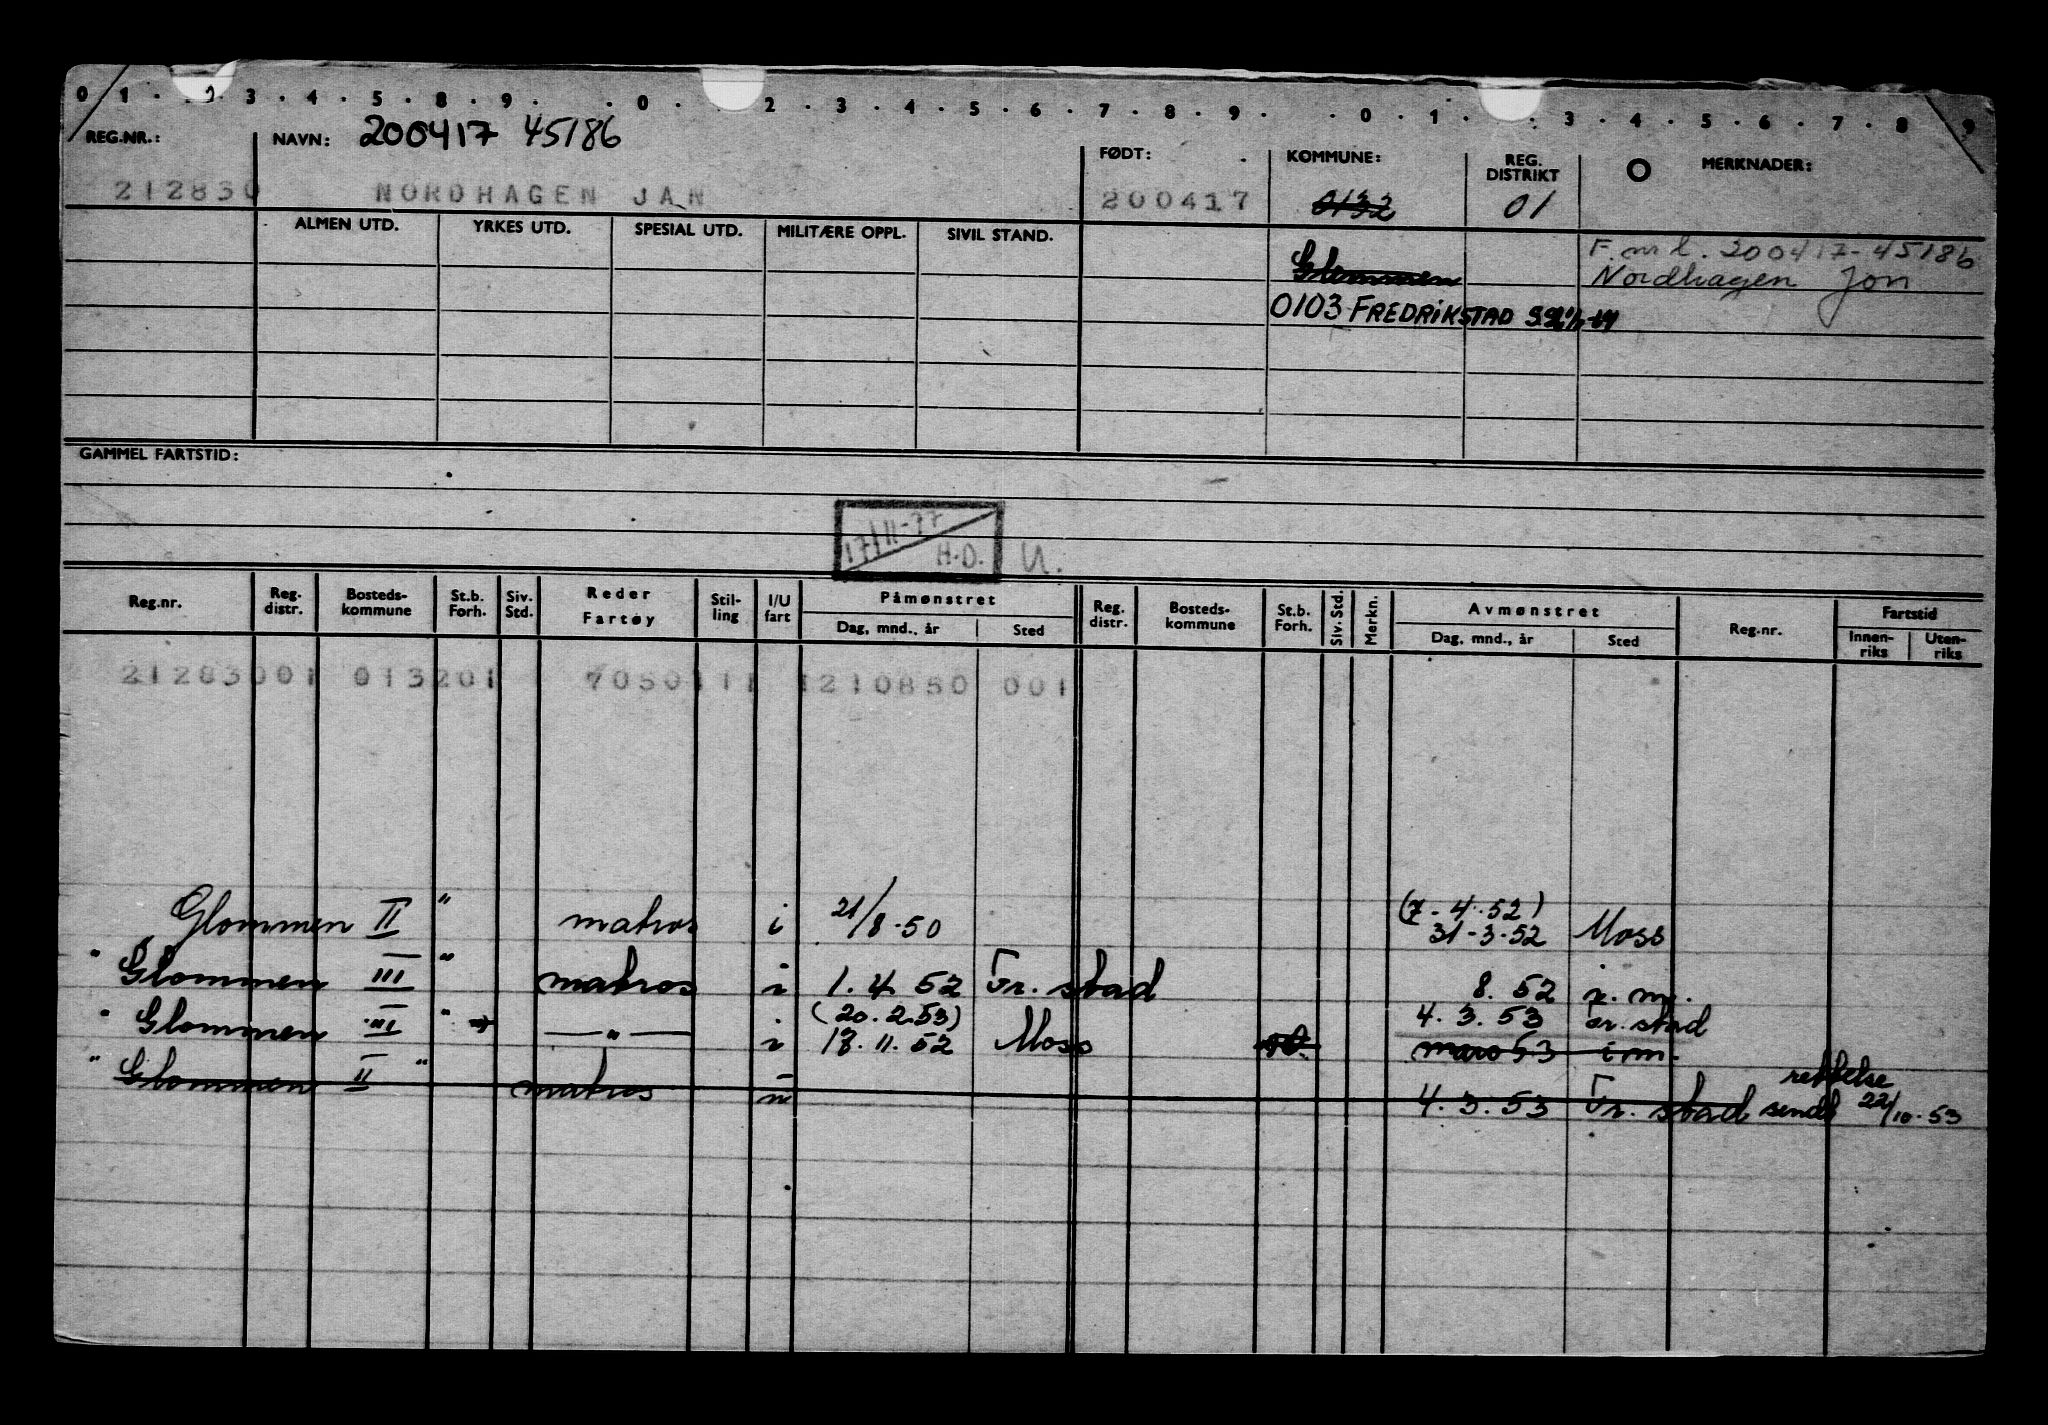 0 1 . . 2 . 3 . 4 . 5 . 8 . 9 . . 0 . . 2 . 3 . 4 . 5 . 6 . 7 . 8 . 9 . . 0 . 1 . . 3 . 4 . 5 . 6 . 7 . 8 9
REG.NR.: NAVN: 200417 45186 FØDT: KOMMUNE: REG. DISTRIKT MERKNADER:
212830 NORDHAGEN JAN 200417 0132 01
ALMEN UTD. YRKES UTD. SPESIAL UTD. MILITÆRE OPPL. SIVIL STAND.
F.m l. 200417-45186
Glemmen Nordhagen Jon
0103 FREDRIKSTAD
GAMMEL FARTSTID:
17/11-77
H.D. U.
Reg.nr. Reg. distr. Bosteds-kommune St.b. Forh. Siv. Std. Reder Fartøy Stil-ling I/U fart Påmønstret Dag, mnd., år Sted Reg. distr. Bosteds-kommune St.b. Forh. Siv. Std. Merkn. Avmønstret Dag, mnd., år Sted Reg.nr. Fartstid Innen-riks Uten-riks
21283001 013201 7050111 1210850 001
(7-4.52)
Glommen II " matros i 21/8-50 31-3-52 Moss
" Glommen III " matros i 1.4.52 Fr.stad 8.52 i.m.
(20.2.53) 4.3.53 Fr.stad
" Glommen III " — " — i 17.11.52 Moss mars 53 i m.
" Glommen II " matros i 4.3.53 Fr.stad
rettelse
sendt 22/10-53